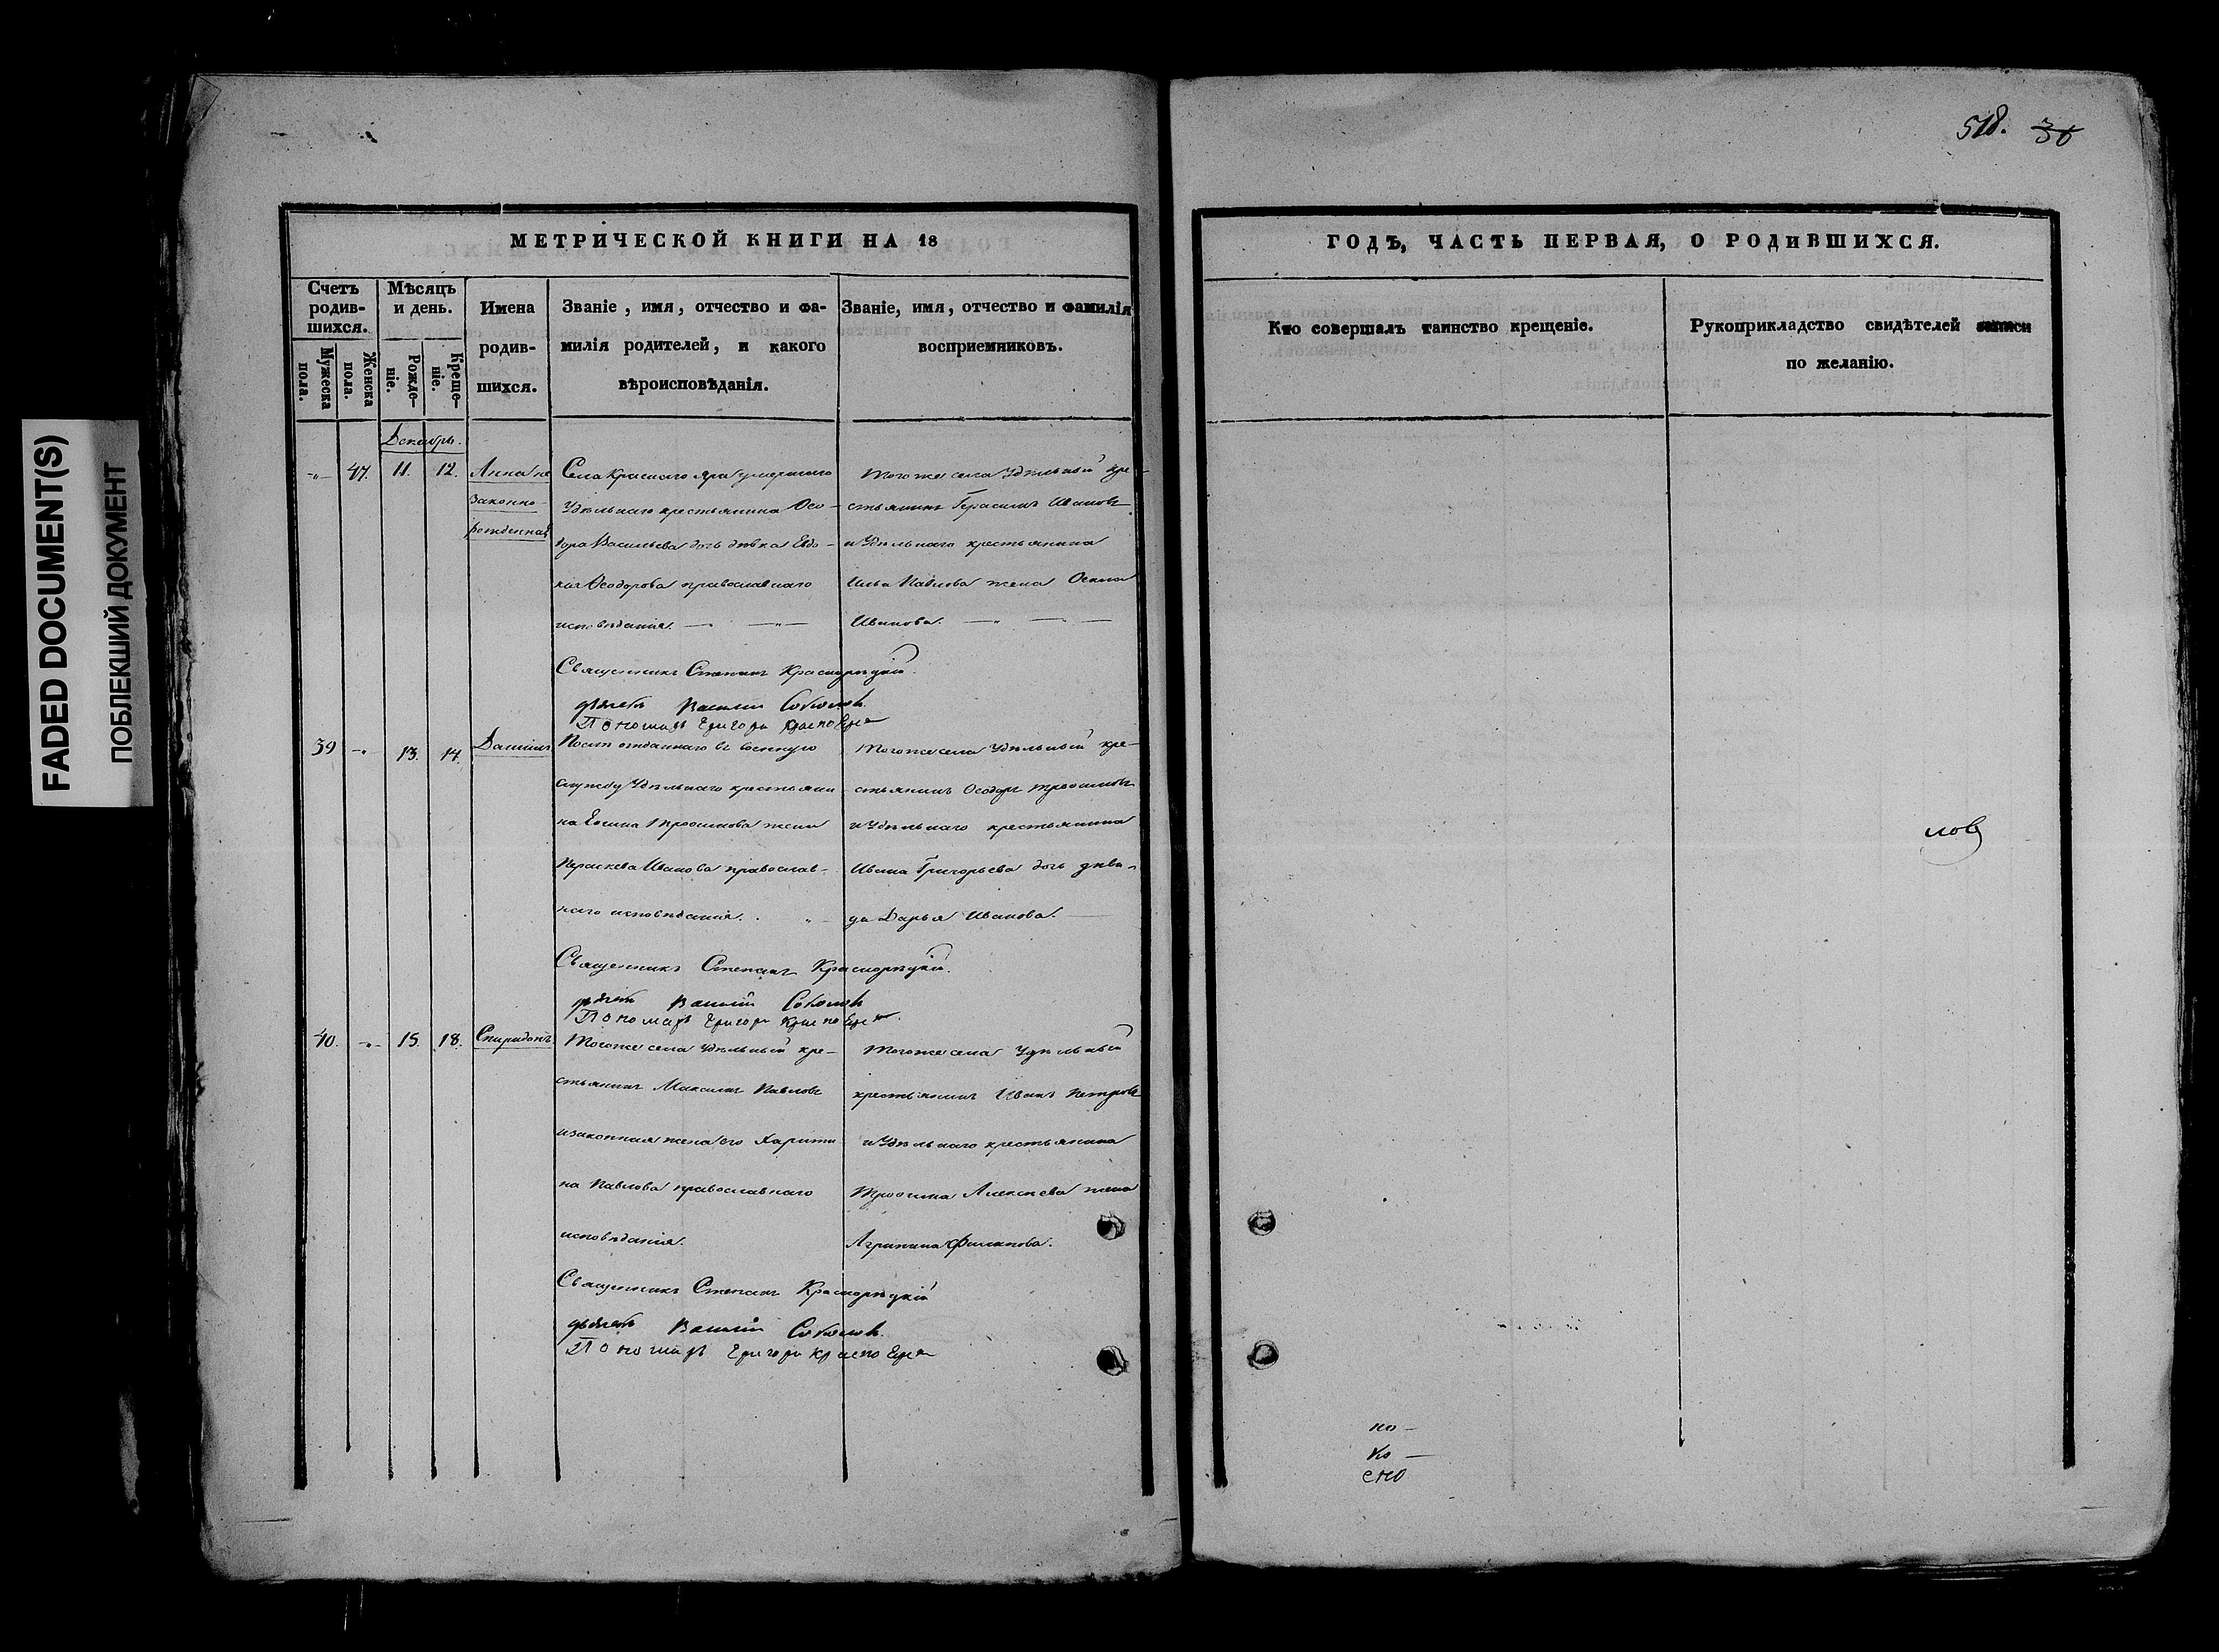 FADED DOCUMENT(S)
ПОБЛЕКШИЙ ДОКУМЕНТ
518. 36
МЕТРИЧЕСКОЙ КНИГИ НА 18
Счетъ родив- шихся.
Мужеска пола.
Женска пола.
Мѣсяцъ и день.
Рожде- ніе.
Креще- ніе.
Имена родив- шихся.
Званіе, имя, отчество и фа-
милія родителей, и какого
вѣроисповѣданія.
Званіе, имя, отчество и фамилія
воспріемниковъ.
Декабрь.
47. 11. 12. Анна не
законно
рожденная
Села Краснаго Яра умершаго
Удѣльнаго крестьянина Ѳео-
дора Васильева дочь дѣвка Евдо-
кія Ѳеодорова православнаго
исповѣданія.
Тогоже села Удѣльный кре-
стьянинъ Герасимъ Ивановъ
и Удѣльнаго крестьянина
Ильи Павлова жена
Иванова.
Священникъ Стефанъ Красногрѣцкій.
Василій Соколовъ.
Пономарь Григорій
39 13. 14. Даніилъ
Послѣ отданнаго въ военную
службу Удѣльнаго крестьяни
на Троѳимова жена
Параскева Иванова православ-
наго исповѣданія.
Тогоже села Удѣльный кре-
стьянинъ Ѳеодоръ Троѳимовъ
и Удѣльнаго крестьянина
Ивана Григорьева дочь дѣви-
ца Дарья Иванова.
Священникъ Стефанъ Красногрѣцкій.
Василій Соколовъ
Пономарь Григорій
40. 15. 18. Спиридонъ
Тогоже села Удѣльный кре-
стьянинъ Максимъ Павловъ
и законная жена его Харити
на Павлова православнаго
исповѣданія.
Тогоже села Удѣльный
крестьянинъ Иванъ Петровъ
и Удѣльнаго крестьянина
Троѳима Алексѣева жена
Агрипина Филипова.
Священникъ Стефанъ Красногрѣцкій
Василій Соколовъ.
Пономарь Григорій
ГОДЪ, ЧАСТЬ ПЕРВАЯ, О РОДИВШИХСЯ.
Кто совершалъ таинство крещеніе.
Рукоприкладство свидѣтелей записи
по желанію.
лов
но-
ко-
сно